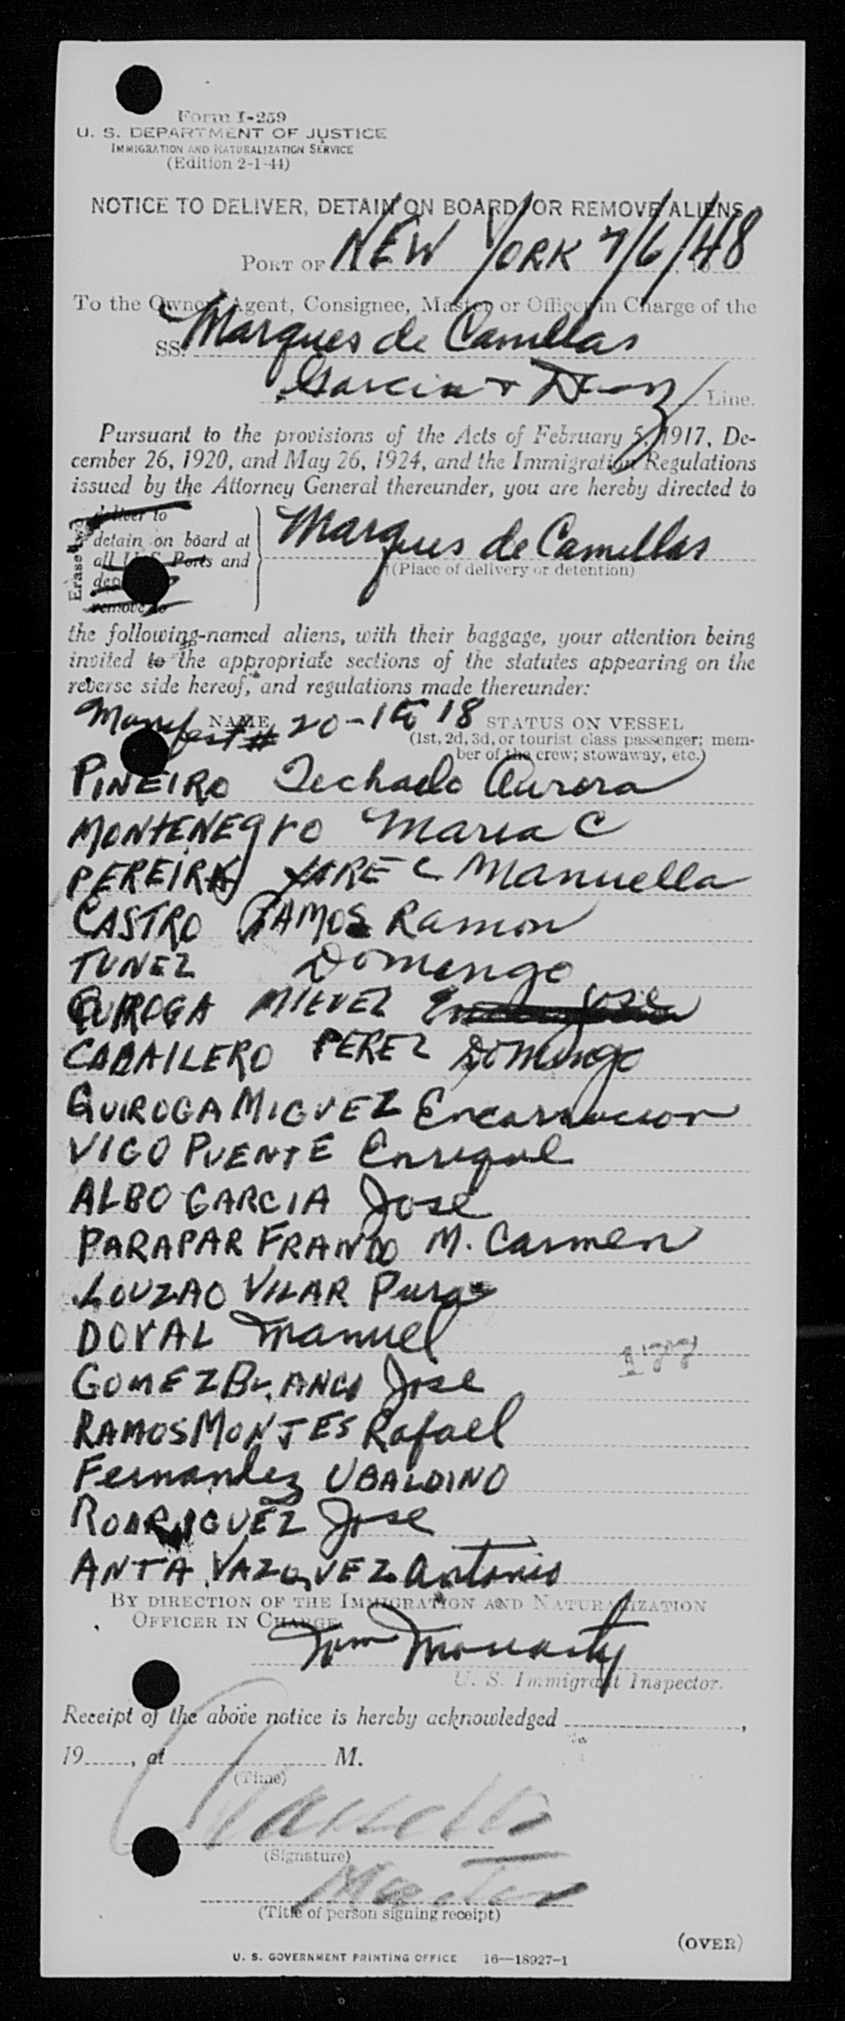 Form I-259
U. S. DEPARTMENT OF JUSTICE
IMMIGRATION AND NATURALIZATION SERVICE
(Edition 2-1-44)
NOTICE TO DELIVER, DETAIN ON BOARD, OR REMOVE ALIENS
PORT OF NEW YORK 7/6/48
To the Owner, Agent, Consignee, Master or Officer in Charge of the
SS. Marques de Camillas
Garcia + Diaz Line.
Pursuant to the provisions of the Acts of February 5, 1917, De-
cember 26, 1920, and May 26, 1924, and the Immigration Regulations
issued by the Attorney General thereunder, you are hereby directed to
Erase two
deliver to
detain on board at
all U.S. Ports and
remove to
Marques de Camillas
(Place of delivery or detention)
the following-named aliens, with their baggage, your attention being
invited to the appropriate sections of the statutes appearing on the
reverse side hereof, and regulations made thereunder:
Manifest # 20-1 to 18
NAME STATUS ON VESSEL
(1st, 2d, 3d, or tourist class passenger; mem-
ber of the crew; stowaway, etc.)
PINEIRO Techado Aurora
MONTENEGRO Maria C
PEREIRA Manuella
CASTRO RAMOS Ramon
TUNEZ Domingo
QUIROGA MIGUEZ Jose
CABAILERO PEREZ Domingo
QUIROGA MIGUEZ Encarnacion
VIGO PUENTE Enrique
ALBO GARCIA Jose
PARAPAR FRANCO M. Carmen
LOUZAO VILAR Pura
DOVAL Manuel
177
GOMEZ BLANCO Jose
RAMOS MONTES Rafael
Fernandez UBALDINO
RODRIGUEZ Jose
ANTA VAZQUEZ Antonio
BY DIRECTION OF THE IMMIGRATION AND NATURALIZATION
OFFICER IN CHARGE
Tom Moriarty
U. S. Immigrant Inspector.
Receipt of the above notice is hereby acknowledged ,
19 , at M.
(Time)
(Signature)
Master
(Title of person signing receipt)
(OVER)
U. S. GOVERNMENT PRINTING OFFICE 16—18927-1